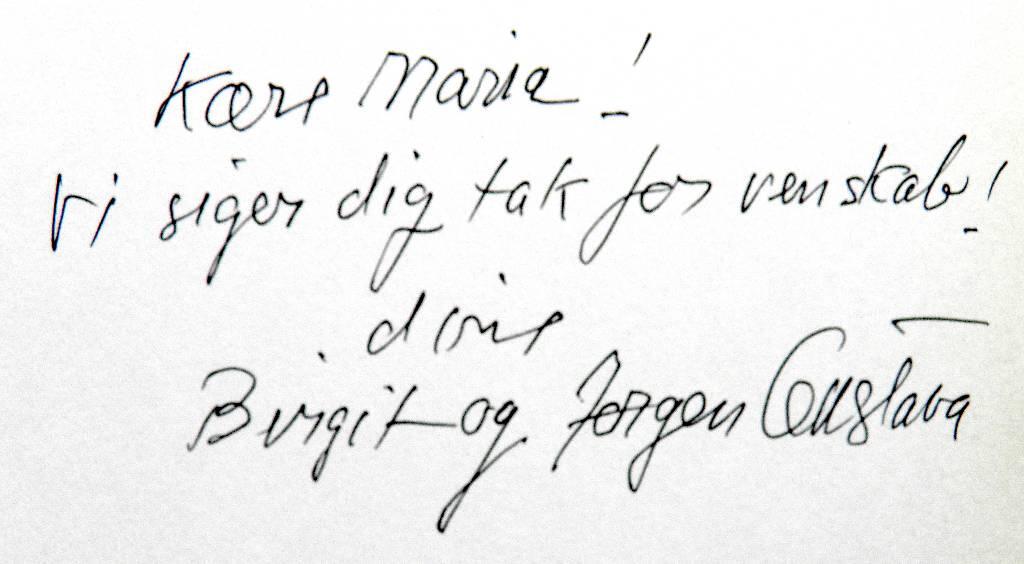 Kære Maria!
Vi siger dig tak for venskab!
dine
Birgit og Jørgen Gustava